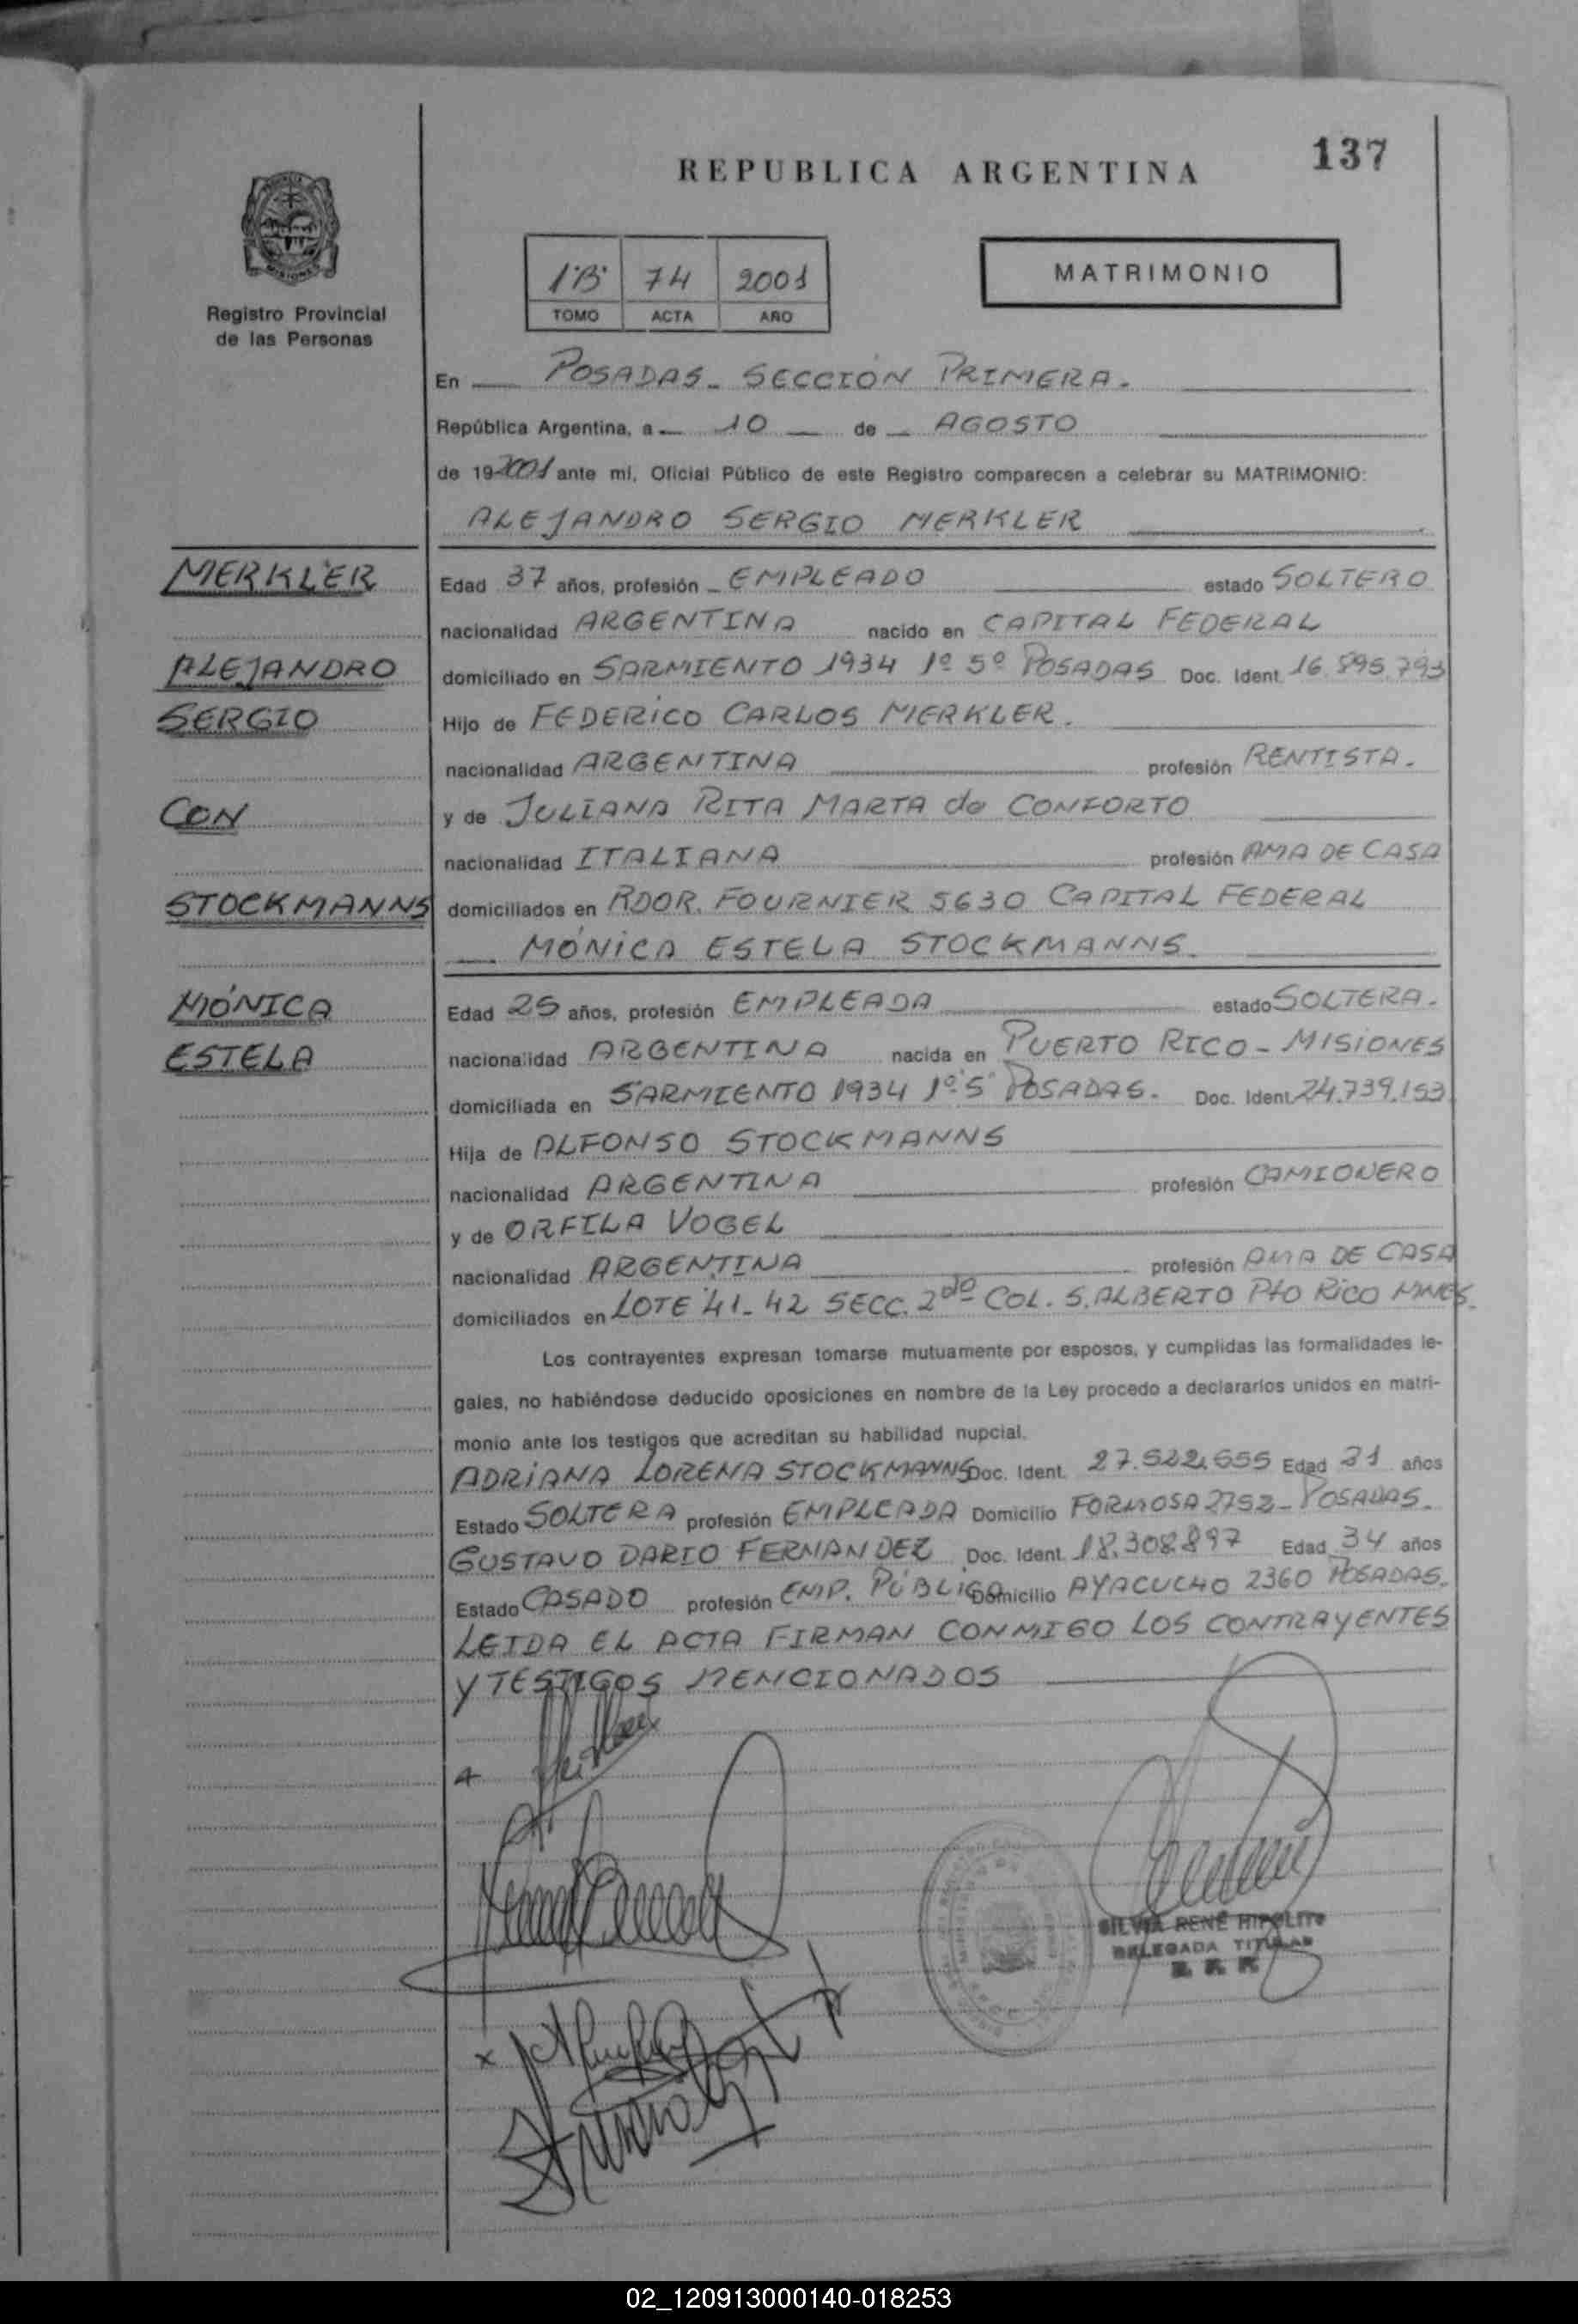 137
REPUBLICA ARGENTINA
Registro Provincial
de las Personas
1"B" 74 2001
TOMO ACTA AÑO
MATRIMONIO
En POSADAS - SECCIÓN PRIMERA.
República Argentina, a 10 de AGOSTO
de 19 2001 ante mí, Oficial Público de este Registro comparecen a celebrar su MATRIMONIO:
ALEJANDRO SERGIO MERKLER
MERKLER
ALEJANDRO
SERGIO
CON
STOCKMANNS
MÓNICA
ESTELA
Edad 37 años, profesión EMPLEADO estado SOLTERO
nacionalidad ARGENTINA nacido en CAPITAL FEDERAL
domiciliado en SARMIENTO 1934 1º 5º POSADAS Doc. Ident. 16.895.793
Hijo de FEDERICO CARLOS MERKLER.
nacionalidad ARGENTINA profesión RENTISTA.
y de JULIANA RITA MARTA de CONFORTO
nacionalidad ITALIANA profesión AMA DE CASA
domiciliados en RDOR. FOURNIER 5630 CAPITAL FEDERAL
MÓNICA ESTELA STOCKMANNS
Edad 25 años, profesión EMPLEADA estado SOLTERA.
nacionalidad ARGENTINA nacida en PUERTO RICO - MISIONES
domiciliada en SARMIENTO 1934 1º 5º POSADAS. Doc. Ident. 24.739.153
Hija de ALFONSO STOCKMANNS
nacionalidad ARGENTINA profesión CAMIONERO
y de ORFILA VOGEL
nacionalidad ARGENTINA profesión AMA DE CASA
domiciliados en LOTE 41-42 SECC. 2da COL. S. ALBERTO Pto RICO MNES.
Los contrayentes expresan tomarse mutuamente por esposos, y cumplidas las formalidades le-
gales, no habiéndose deducido oposiciones en nombre de la Ley procedo a declararlos unidos en matri-
monio ante los testigos que acreditan su habilidad nupcial.
ADRIANA LORENA STOCKMANNS Doc. Ident. 27.522.555 Edad 21 años
Estado SOLTERA profesión EMPLEADA Domicilio FORMOSA 2752 - POSADAS.
GUSTAVO DARIO FERNANDEZ Doc. Ident. 18.308.897 Edad 34 años
Estado CASADO profesión EMP. PÚBLICO Domicilio AYACUCHO 2360 POSADAS.
LEIDA EL ACTA FIRMAN CONMIGO LOS CONTRAYENTES
Y TESTIGOS MENCIONADOS
SILVIA RENÉ HIPÓLITO
DELEGADA TITULAR
02_120913000140-018253